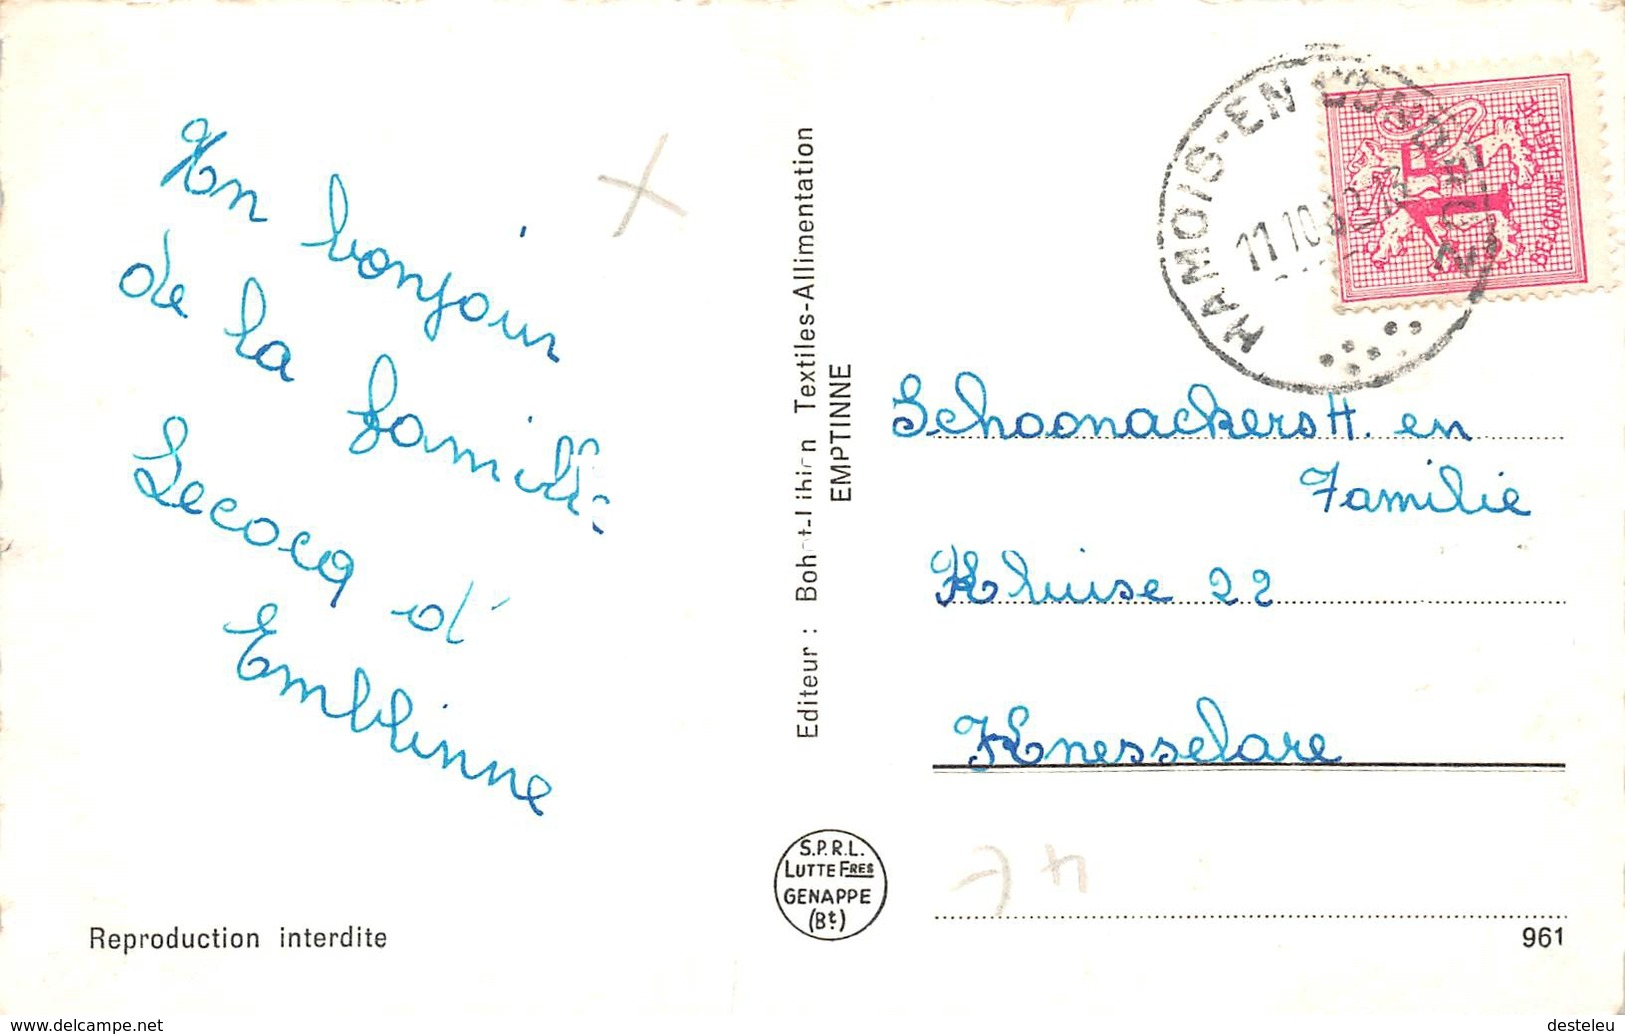 Un bonjour
de la famille
Lecocq d'
Emblinne
Reproduction interdite
Editeur : Textiles-Allimentation
EMPTINNE
S.P.R.L.
LUTTE FRES
GENAPPE
(Bt)
HAMOIS-EN CONDROZ
11.10.6
1F
BELGIQUE BELGIE
Schoonackers H. en
Familie
Kluise 22
Knesselare
961
www.delcampe.net
desteleu